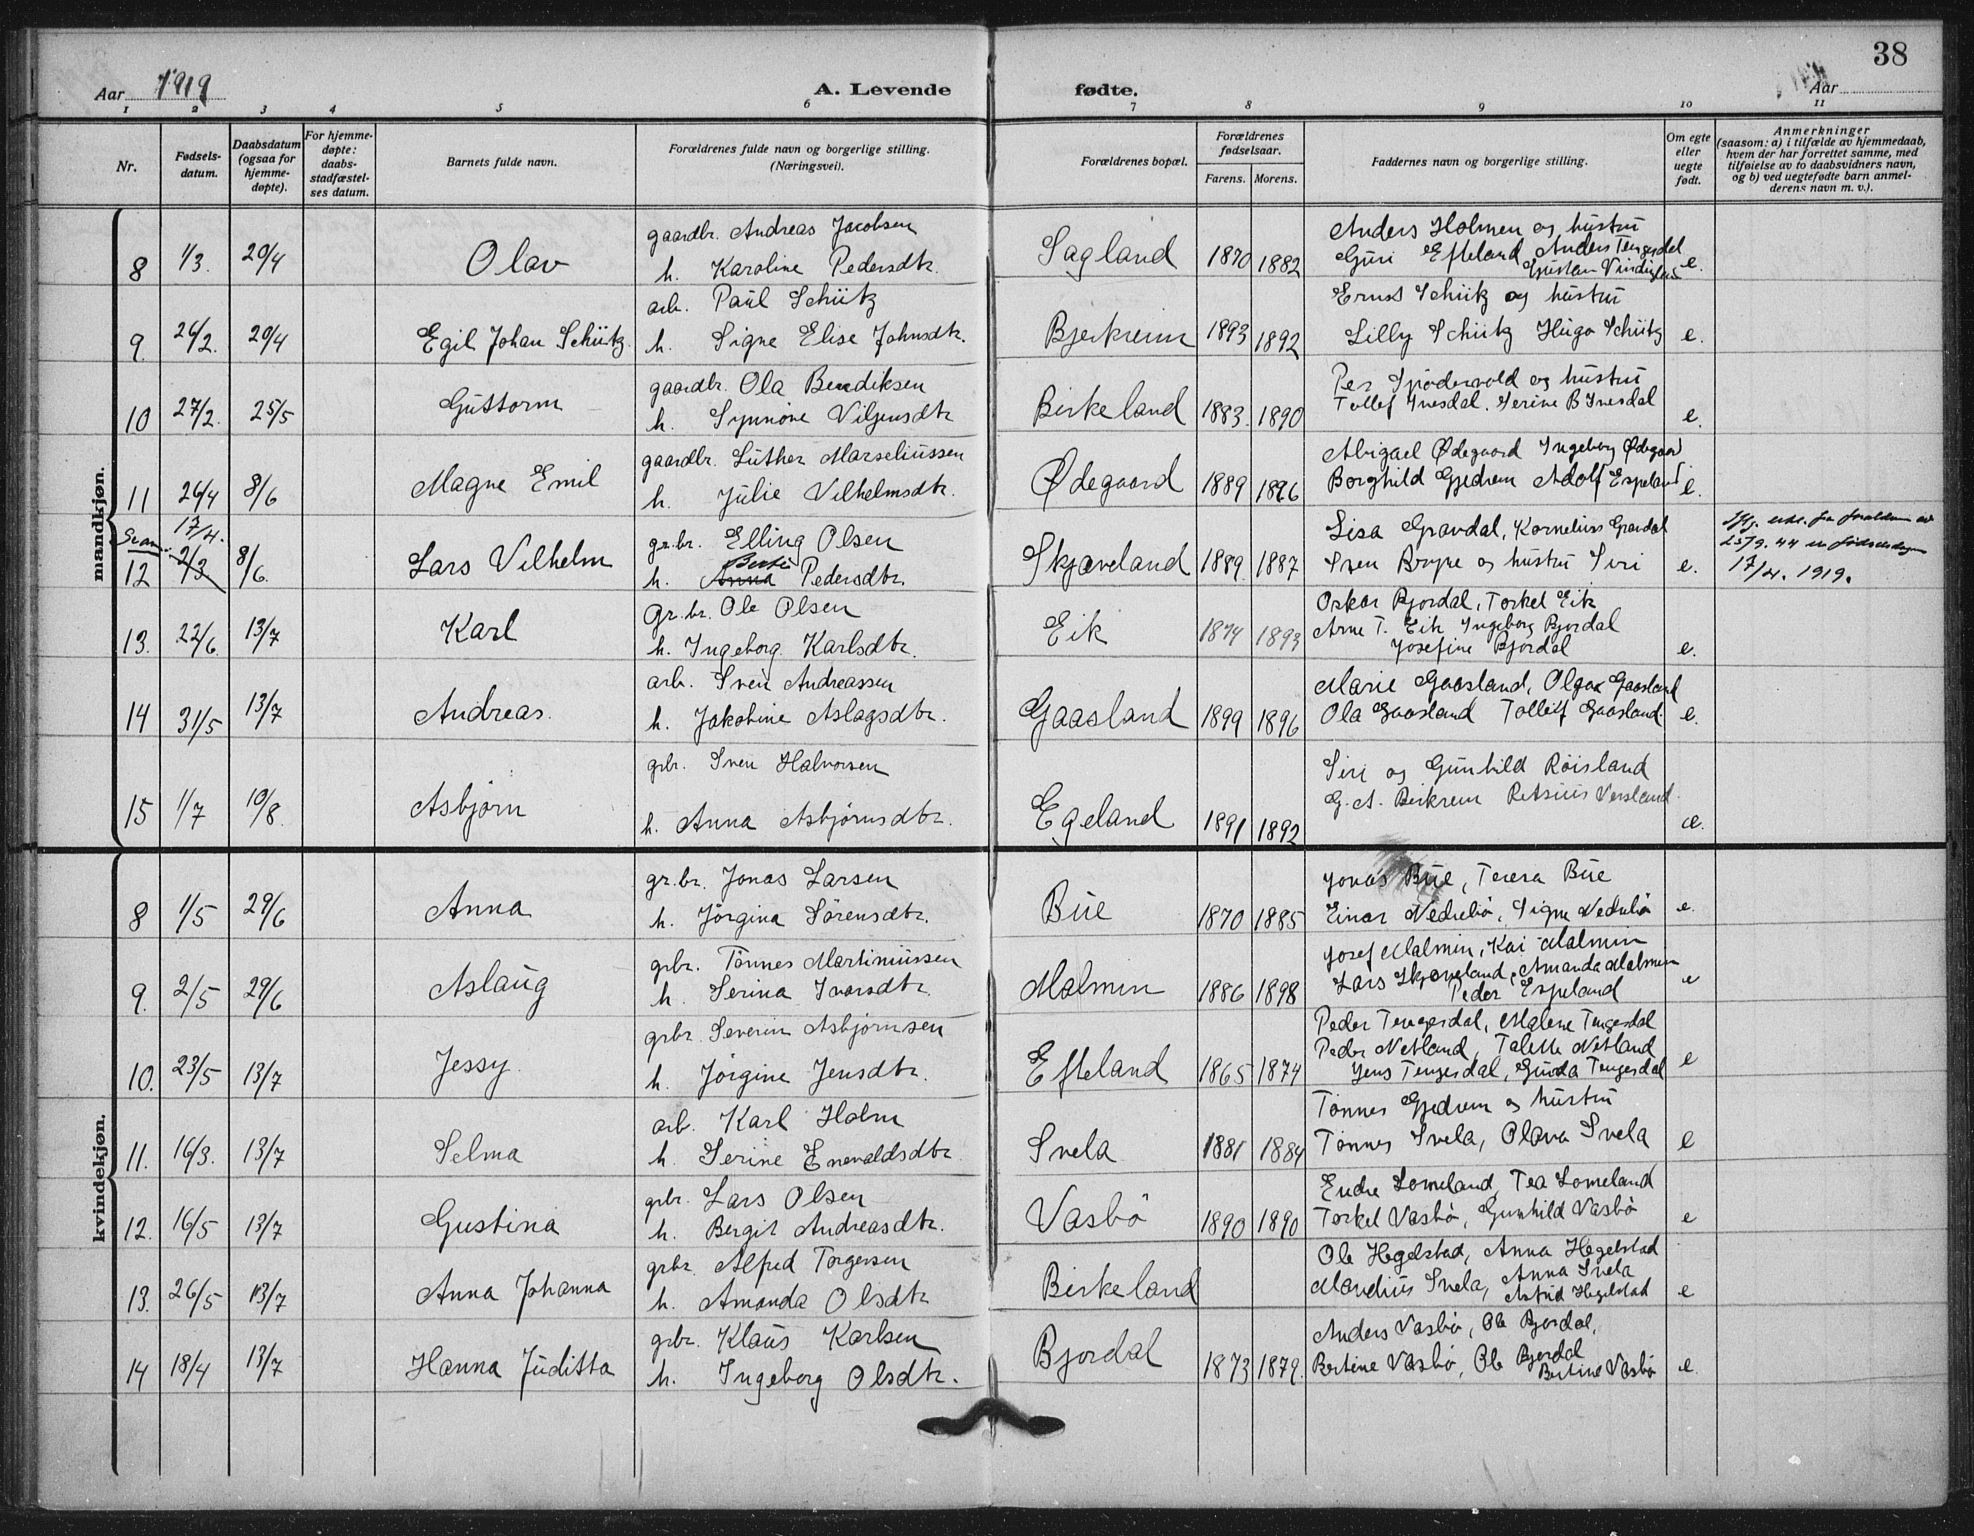 38
Aar 1919
A. Levende
fødte.
Aar
1 2 3 4 5 6 7 8 9 10 11
Nr.
Fødsels-
datum.
Daabsdatum
(ogsaa for
hjemme-
døpte).
For hjemme-
døpte:
daabs-
stadfæstel-
ses datum.
Barnets fulde navn.
Forældrenes fulde navn og borgerlige stilling.
(Næringsvei).
Forældrenes bopæl.
Forældrenes
fødselsaar.
Farens. Morens.
Faddernes navn og borgerlige stilling.
Om egte
eller
uegte
født.
Anmerkninger
(saasom: a) i tilfælde av hjemmedaab,
hvem der har forrettet samme, med
tilføielse av to daabsvidners navn,
og b) ved uegtefødte barn anmel-
derens navn m. v.).
mandkjøn.
gaardbr. Andreas Jacobsen
Anders Holmen og hustru
8 1/3. 20/4 Olav h. Karoline Pedersdtr. Sagland 1870 1882 Guri Efteland Anders Tengesdal e.
arb. Paul Schütz
Ernst Schütz og hustru
9. 26/2. 20/4 Egil Johan Schütz. h. Signe Elise Johnsdtr. Bjerkreim 1893 1892 Lilly Schütz Hugo Schütz e.
gaardbr. Ola Bendiksen
Per og hustru
10 27/2. 25/5 Guttorm h. Synnöve Birkeland 1883. 1890 Tollef Ivesdal. Serine B Ivesdal e.
gaardbr. Luther Marseliussen
Abigael Ødegaard Ingeborg Ødegaard
11 26/4 8/6 Magne Emil h. Julie Vilhelmsdtr. Ødegaard 1889 1896 Borghild Gjedrem Adolf Espeland e.
17/4.
gr.br. Elling Olsen
Lisa Gravdal, Kornelius Gravdal
Berte
12 2/3 8/6. Lars Vilhelm h. Anna Pedersdtr. Skjæveland 1889. 1887 Sven og hustru Siri e.
25/9. 44
17/4. 1919.
gr.br. Ole Olsen
Oskar Bjordal, Torkel Eik
13. 22/6. 13/7 Karl h. Ingeborg Karlsdtr. Eik 1874 1893 Arne T. Eik Ingeborg Bjordal
Josefine Bjordal e.
arb. Sven Andreassen
Marie Gaasland, Olga Gaasland
14 31/5 13/7 Andreas. h. Jakobine Aslagsdtr. Gaasland 1899 1896 Ola Gaasland Tolleif Gaasland. e.
grbr. Sven Halvorsen
Siri og Gunhild Röisland
15 1/7 10/8. Asbjörn h. Anna Asbjørnsdtr. Egeland 1891 1892 G. A. Birkrem Versland e.
kvindekjøn.
gr.br. Jonas Larsen
Jonas Bue, Teresa Bue
8 1/5 29/6 Anna h. Jörgina Sörensdtr. Bue 1870 1885 Einar Nedrebö, Signe Nedrebö e.
grbr. Tönnes Martiniussen
Josef Malmin, Kai Malmin
9. 2/5 29/6 Aslaug h. Serina Ivarsdtr. Malmin 1886 1898 Lars Skjæveland, Amanda Malmin
Peder Espeland e
grbr. Severin Asbjørnsen
Peder Tengesdal, Malene Tengesdal
10. 23/5 13/7 Jessy. h. Jörgine Jensdtr. Efteland 1865 1874 Peder Netland, Talette Netland
Jens Tengesdal, Tengesdal e
arb. Karl Holm
Tönnes Gjedrem og hustru
11. 16/3. 13/7 Selma h. Serine Enevaldsdtr. Svela 1881 1884 Tönnes Svela, Olava Svela e
grbr. Lars Olsen
Endre Lomeland Tea Lomeland
12. 16/5 13/7 Gustina h. Bergit Andreasdtr. Vasbö 1890 1890 Torkel Vasbö, Gunhild Vasbö e
grbr. Alfred Torgersen
Ole Hegelstad, Anna Hegelstad
13. 26/5 13/7 Anna Johanna h. Amanda Olsdtr Birkeland Svela, Anna Svela
Astrid Hegelstad e
grbr. Klaus Karlsen
Anders Vasbö, Ole Bjordal,
14 18/4 13/7 Hanna Juditta h. Ingeborg Olsdtr. Bjordal 1873 1879. Bertine Vasbö, Ole Bjordal
Bertine Vasbö e.